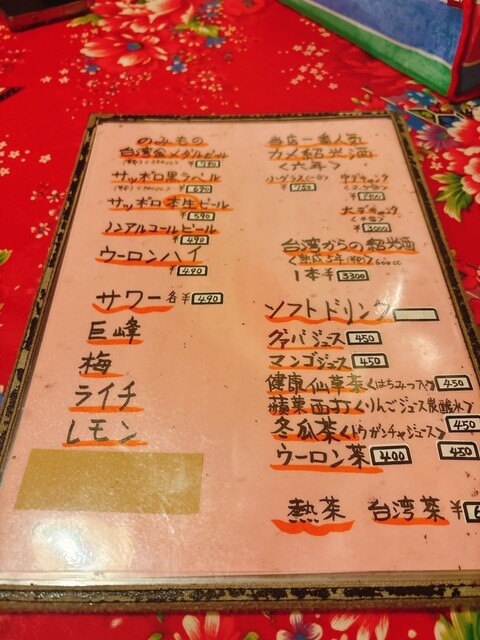 のみもの
台湾金メダルビール
¥780
サッポロ黒ラベル
¥690
サッポロ本生ビール
¥590
ノンアルコールビール
¥490
ウーロンハイ
¥490
サワー各¥490
巨峰
梅
ライチ
レモン
当店一番人気
カメ紹興酒
小グラス
¥750
中デキャンタ
大デキャンタ
¥3000
台湾からの紹興酒
1本¥3300
ソフトドリンク
グァバジュース 450
マンゴジュース 450
健康仙草茶<はちみつ入り> 450
蘋菓西打<りんごジュース炭酸水>
450
冬瓜茶<トウガンチャジュース>
450
ウーロン茶 400
熱茶 台湾茶 ¥